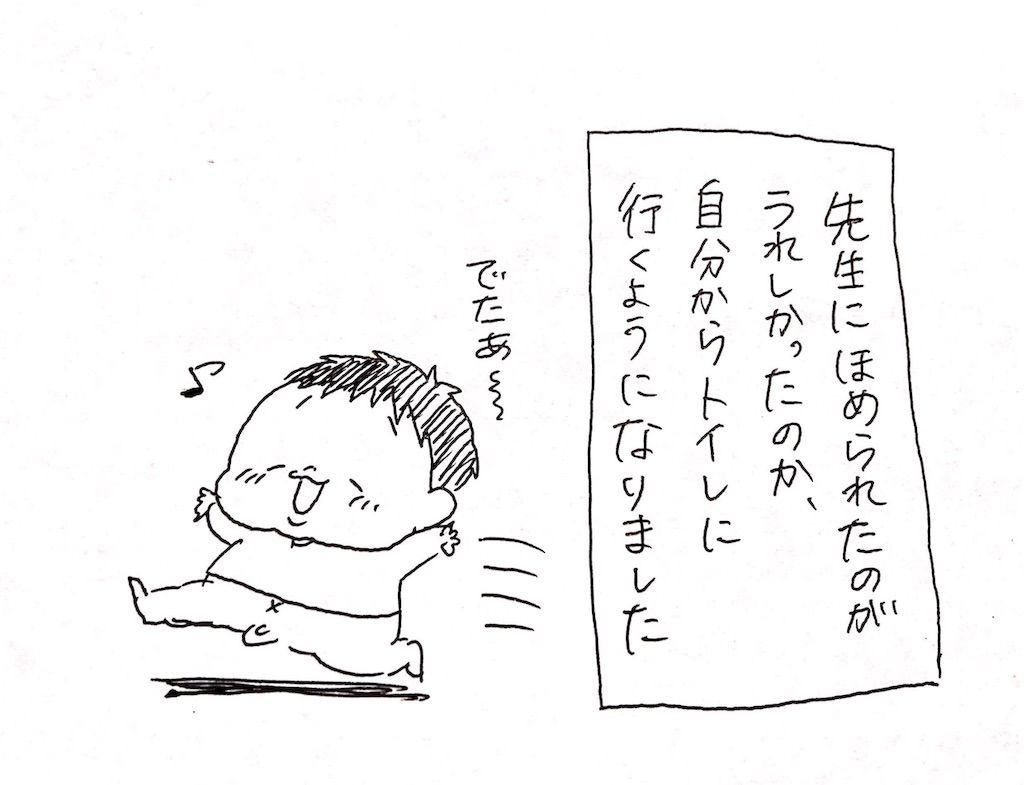 先生にほめられたのが
うれしかったのか、
自分からトイレに
行くようになりました
でたぁ〜